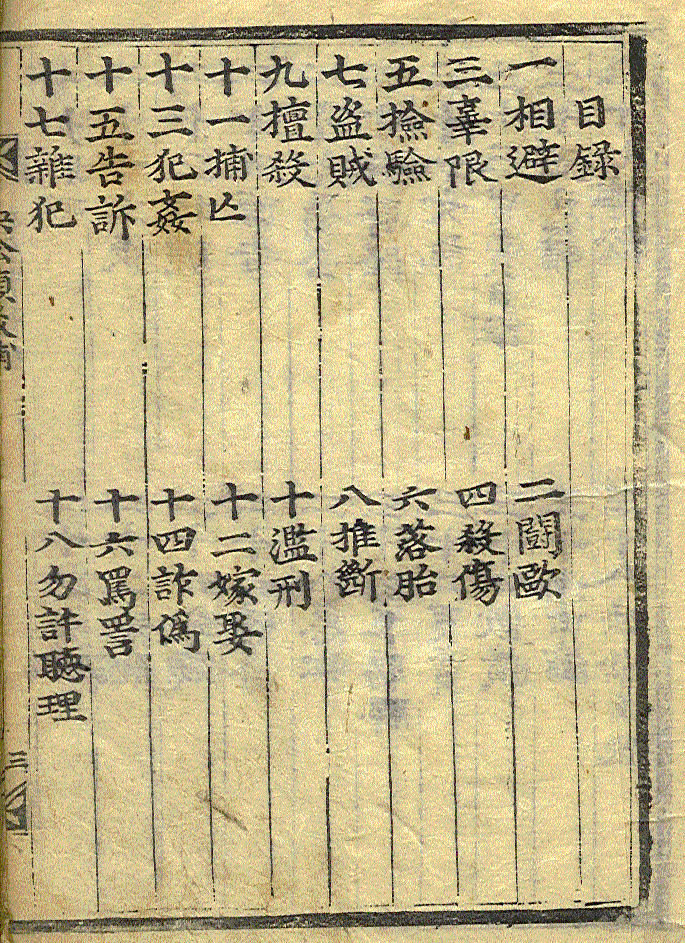 目録
一相避 二鬪歐
三辜限 四殺傷
五撿驗 六落胎
七盗賊 八推斷
九擅殺 十濫刑
十一捕亡 十二嫁娶
十三犯姦 十四詐僞
十五告訴 十六罵詈
十七雜犯 十八勿許聽理
三